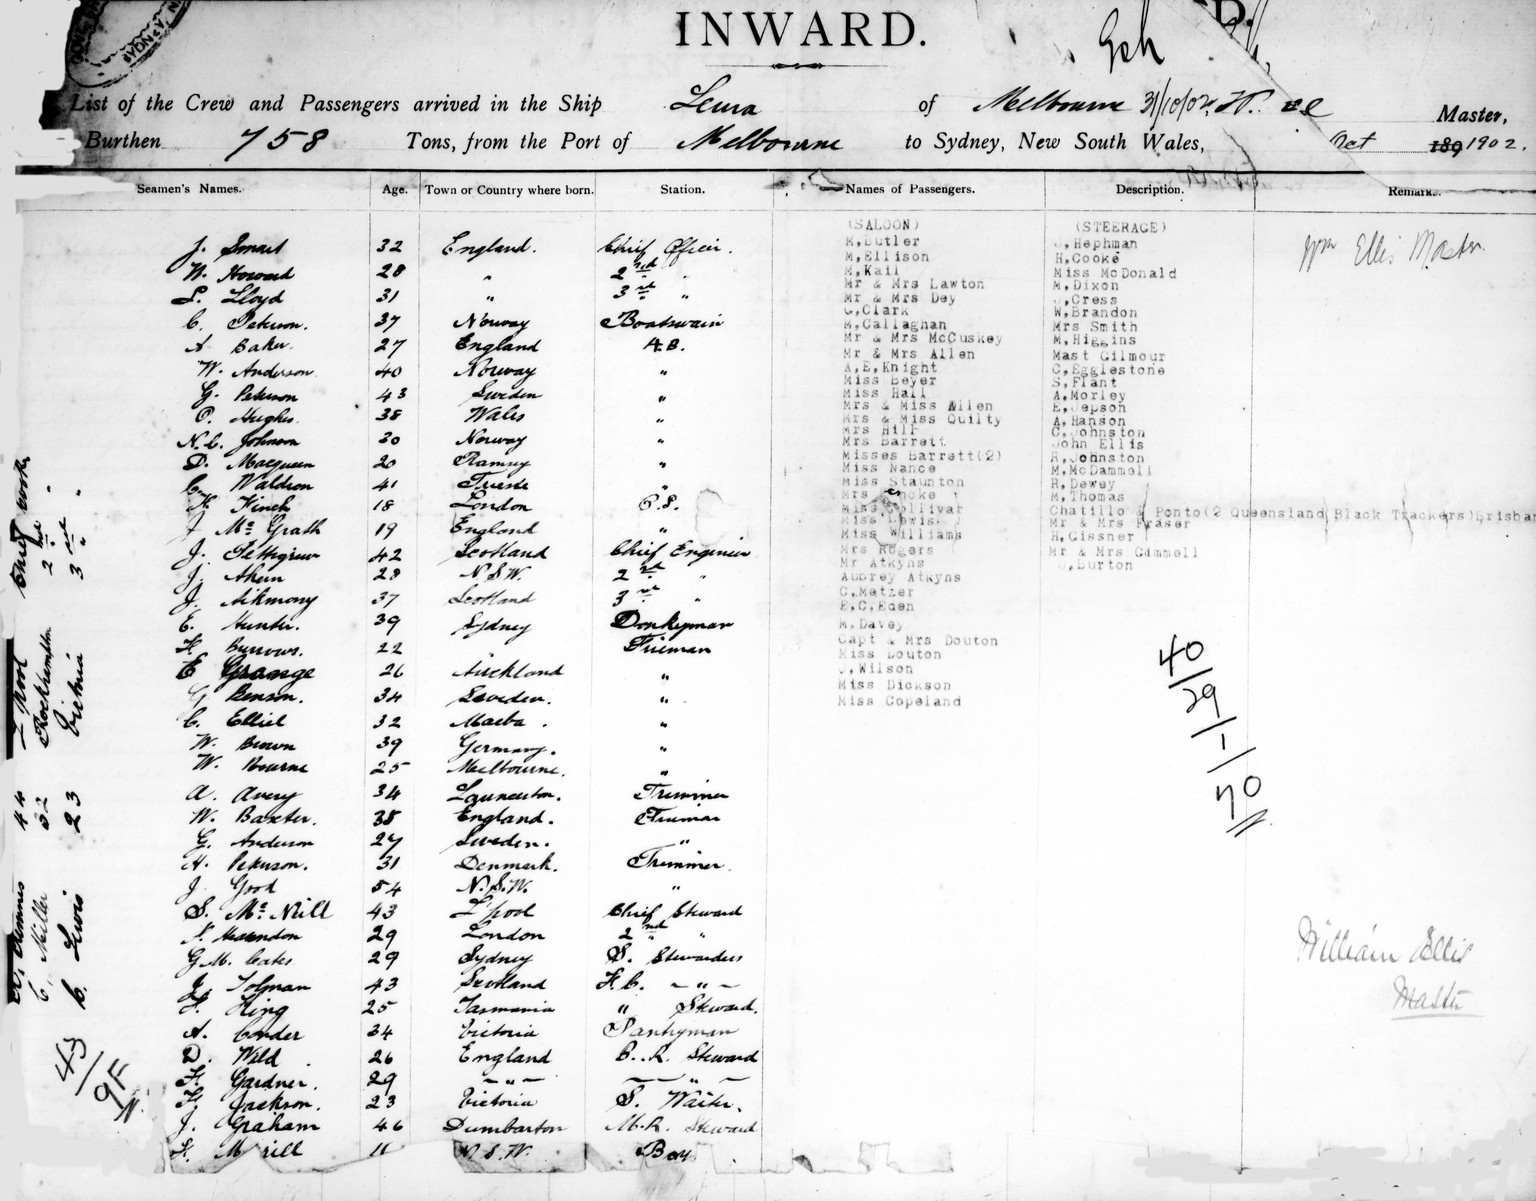 INWARD.
List of the Crew and Passengers arrived in the Ship Leura of Melbourne 31/10/02, Master,
Burthen 758 Tons, from the Port of Melbourne to Sydney, New South Wales, Oct 189 1902.
Seamen's Names. Age. Town or Country where born. Station. Names of Passengers. Description. Remarks.
J. Smart 32 England. Chief Officer.
W. Howard 28 " 2nd "
S. Lloyd 31 " 3rd "
C. Peterson. 37 Norway Boatswain
A Baker. 27 England A.B.
W. Anderson. 40 Norway "
G. Peterson 43 Sweden "
O. Hughes 38 Wales "
N.C. Johnson 30 Norway "
D. Macqueen 20 Ramsey "
C. Waldron 41 Trieste "
Finch 18 London O.S.
J Mc Grath 19 England "
J. Pettigrew 42 Scotland Chief Engineer
J. Ahern 28 N.S.W. 2nd "
J. Aikmony 37 Scotland 3rd "
E. Hunter. 39 Sydney Donkeyman
H. Burrows. 22 Fireman
E Grange 26 Auckland "
G Benson. 34 Sweden. "
C. Elliel 32 "
W. Brown 39 Germany. "
W. Bourne 25 Melbourne. "
A. Avery 34 Launceston. Trimmer
W. Baxter. 38 England. Fireman
G. Anderson 27 Sweden. "
H. Peterson. 31 Denmark. Trimmer.
J Good 54 N.S.W. "
S. Mc Neill 43 L'pool Chief Steward
N. Hearndon 29 London 2nd "
G.M. Cates 29 Sydney S. Stewardess
J. Tolman 43 Scotland F.C. - " -
F. King 25 Tasmania " Steward.
A. Corder 34 Victoria Pantryman
D. Wild 26 England B.R. Steward
F. Gardner. 29 - " - - " -
F. Jackson. 23 Victoria S. Waiter.
J. Graham 46 Dumbarton M.R. Steward
11 N.S.W. Boy
(SALOON)
M.Butler
M.Ellison
M.Kail
Mr & Mrs Lawton
Mr & Mrs Dey
G.Clark
M.Callaghan
Mr & Mrs McCuskey
Mr & Mrs Allen
A.E.Knight
Miss Beyer
Miss Hall
Mrs & Miss Allen
Mrs & Miss Quilty
Mrs Hill
Mrs Barrett
Misses Barrett(2)
Miss Nance
Miss Staunton
Mrs
Miss
Miss Lewis
Miss Williams
Mrs Rogers
Mr Atkyns
Aubrey Atkyns
C.Metzer
E.C.Eden
M.Davey
Capt & Mrs Douton
Miss Douton
J.Wilson
Miss Dickson
Miss Copeland
(STEERAGE)
J.Hephman
H.Cooke
Miss McDonald
M.Dixon
J.Cress
W.Brandon
Mrs Smith
M.Higgins
Mast Gilmour
C.Egglestone
S.Flant
A.Morley
E.Jepson
A.Hanson
C.Johnston
John Ellis
R.Johnston
M.McDammell
R.Dewey
M.Thomas
Chatillo & Ponto(2 Queensland Black Trackers)Brisban
Mr & Mrs Fraser
H.Gissner
Mr & Mrs Gammell
J.Burton
Wm Ellis Master
40/29/-/70
William Ellis
Master
C. Miller 32 Rockhampton 2nd "
C. Lewis 23 Victoria 3rd "
44 L'pool Chief Cook
43/9F